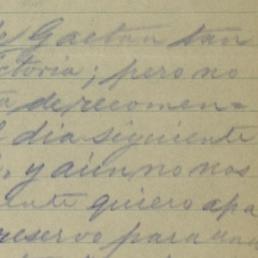 de Gaetan tan
ctoria; pero no
de recomen=
dia siguiente
y aún no nos
ente quiero apa
reservo para una